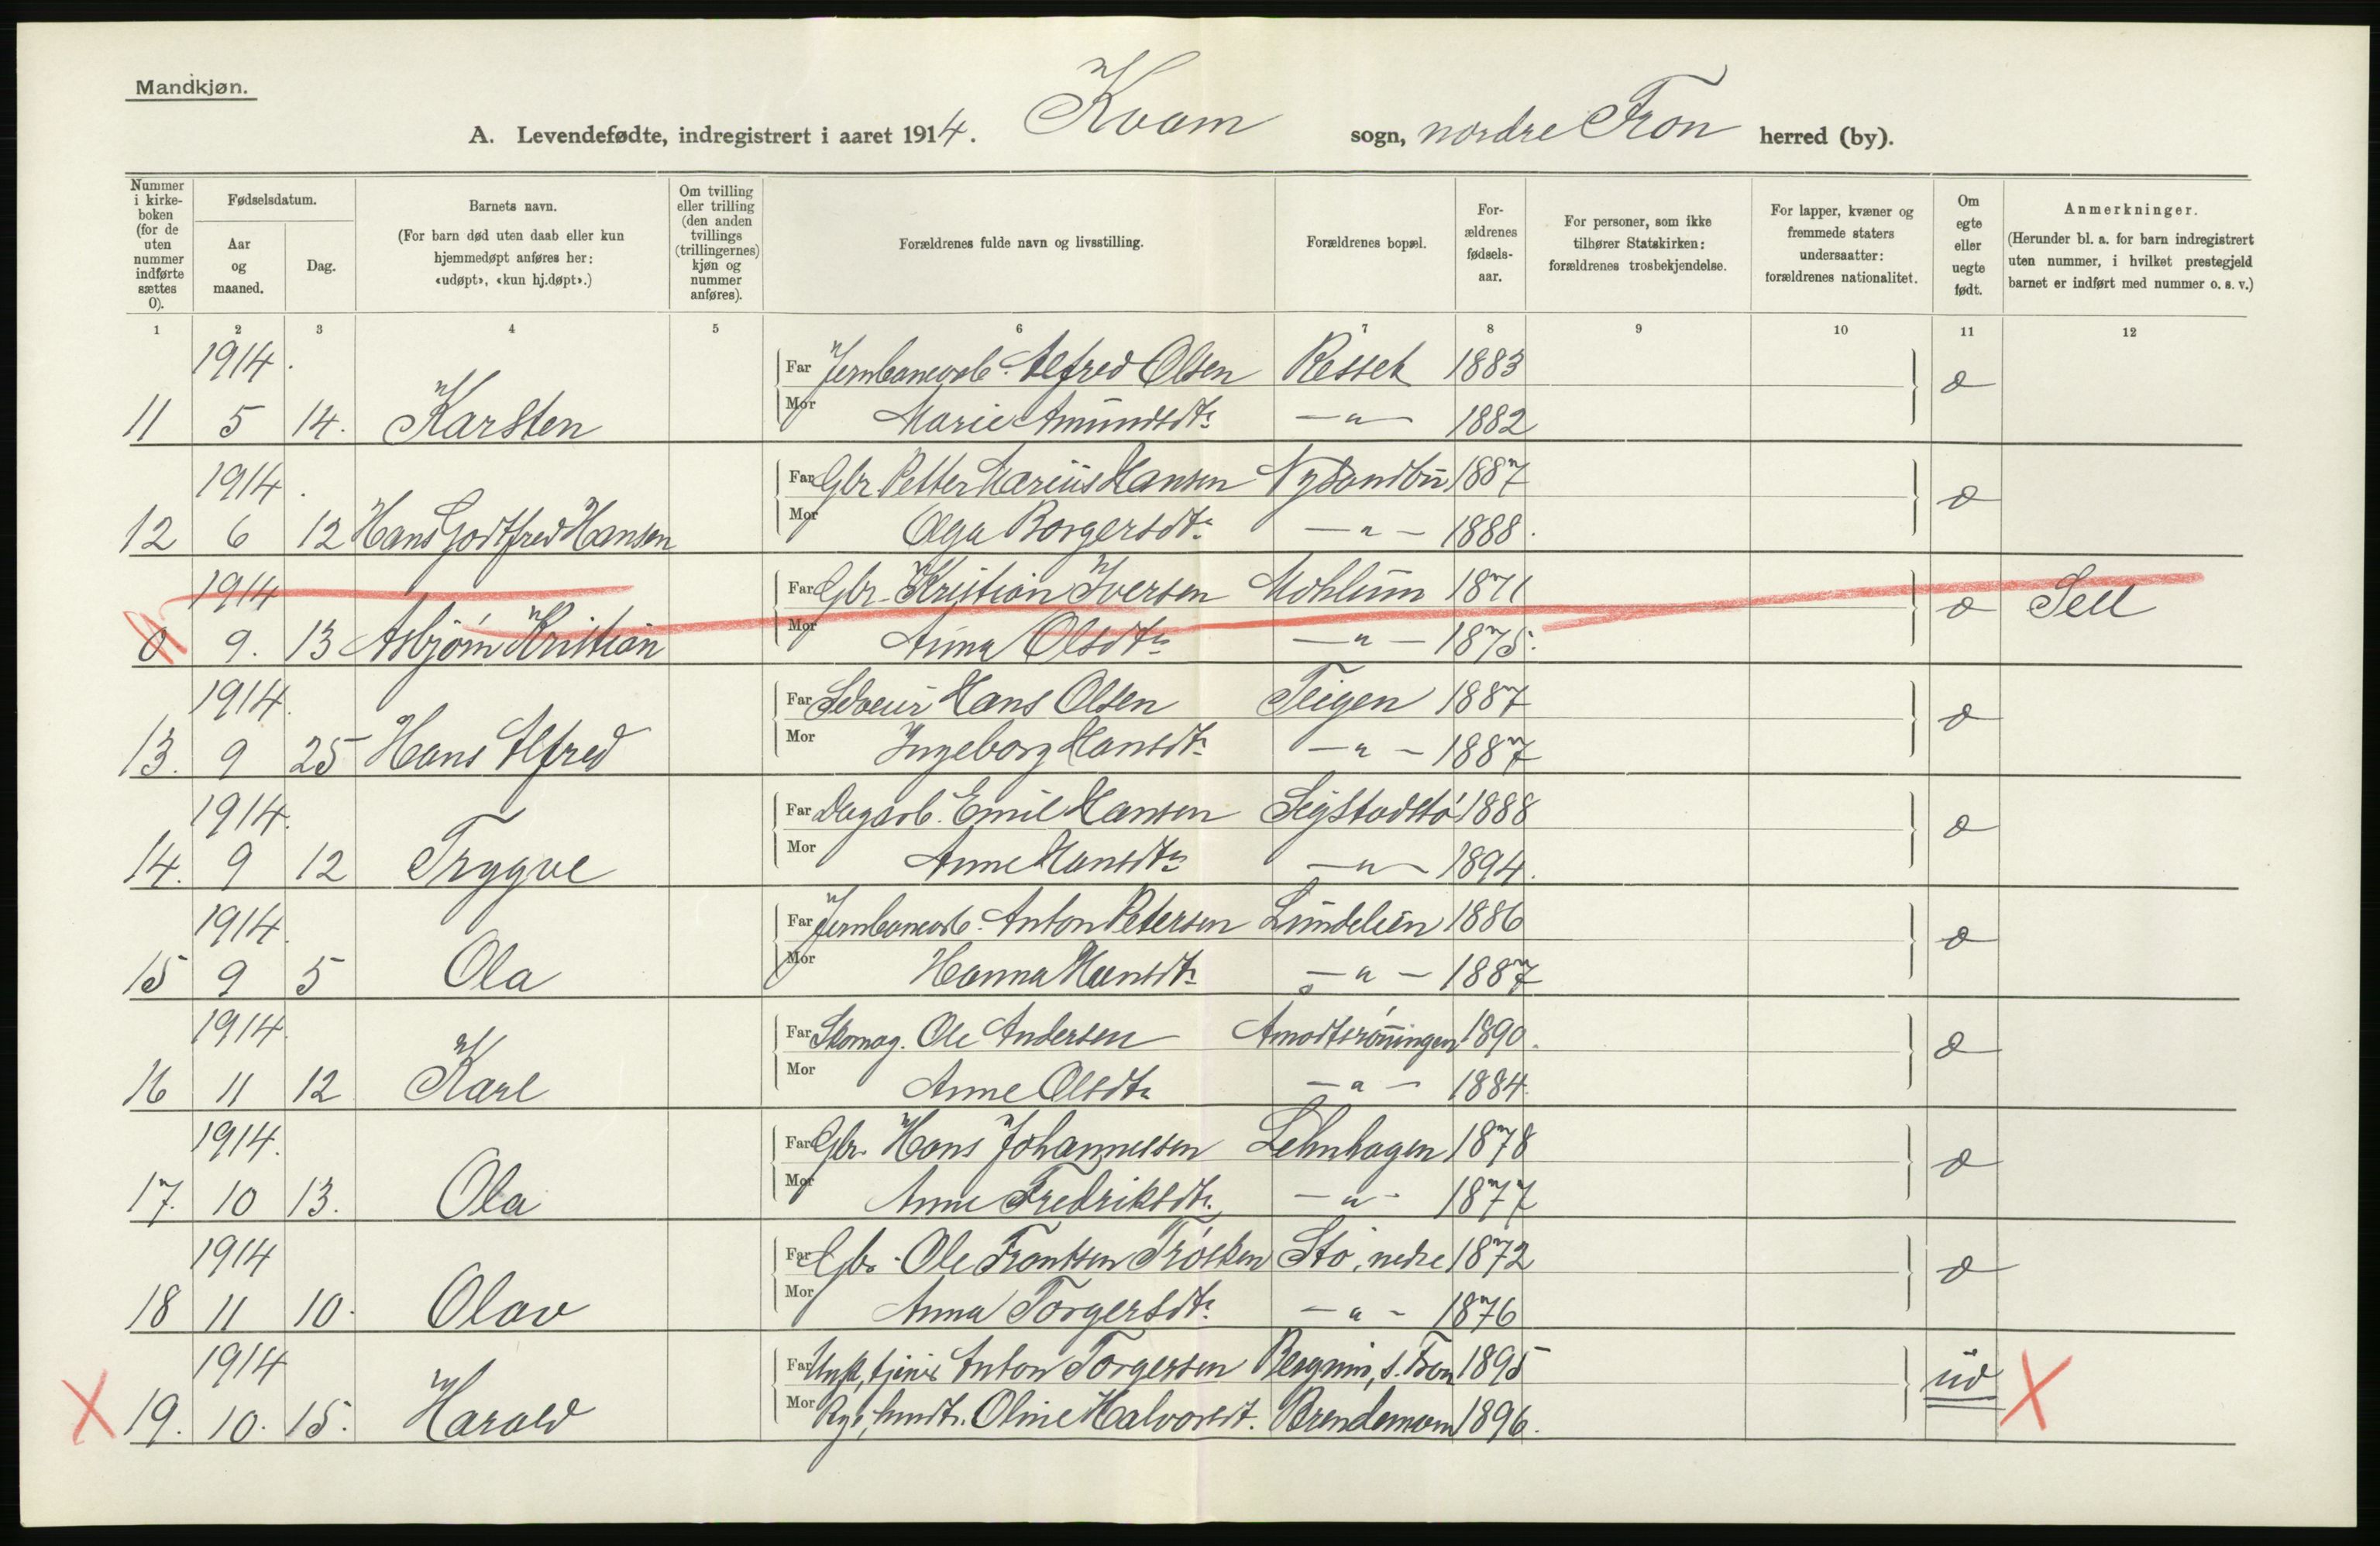 Mandkjøn.
A. Levendefødte, indregistrert i aaret 1914. Kvam sogn, nordre Fron herred (by).
Nummer i kirke-boken (for de uten nummer indførte sættes 0).
Fødselsdatum.
Aar og maaned.
Dag.
Barnets navn.
(For barn død uten daab eller kun hjemmedøpt anføres her: «udøpt», «kun hj.døpt».)
Om tvilling eller trilling (den anden tvillings (trillingernes) kjøn og nummer anføres).
Forældrenes fulde navn og livsstilling.
Forældrenes bopæl.
For-ældrenes fødsels-aar.
For personer, som ikke tilhører Statskirken: forældrenes trosbekjendelse.
For lapper, kvæner og fremmede staters undersaatter: forældrenes nationalitet.
Om egte eller uegte født.
Anmerkninger.
(Herunder bl. a. for barn indregistrert uten nummer, i hvilket prestegjeld barnet er indført med nummer o. s. v.)
1 2 3 4 5 6 7 8 9 10 11 12
1914. Far Jernbanearb. Alfred Olsen 1883
11 5 14. Karsten Mor Marie Amundsdtr. —„— 1882
1914. Far Gbr Petter Marius Hansen 1887
12 6 12 Hans Godtfred Hansen Mor Olga Borgersdtr. —„— 1888.
1914 Far Gbr. Kristian Iversen 1871 Sell
0 9. 13 Asbjørn Kristian Mor Anna Olsdtr. —„— 1875.
1914. Far Hans Olsen Teigen 1887
13. 9 25 Hans Alfred Mor Ingeborg Hansdtr. —„— 1887
1914. Far Dagarb. Emil Hansen 1888
14. 9 12 Trygve Mor Anne Hansdtr. —„— 1894.
1914. Far Jernbanearb. Anton Petersen Lundelien 1886
15 9 5 Ola Mor Hanna Hansdtr. —„— 1887
1914. Far Skomag. Ole Andersen 1890.
16 11 12 Karl Mor Anne Olsdtr. —„— 1884.
1914. Far Gbr. Hans Johannessen 1878
17. 10 13. Ola Mor Anne Fredriksdtr. —„— 1877
1914 Far Gbr. Ole Frantsen Trøsken Stø, nedre 1872
18 11 10. Olav Mor Anna Torgersdtr. —„— 1876
1914 Far Anton Torgersen s. Fron 1895 ud
19. 10. 15. Harald Mor Oline Halvorsdt. Brendemoen 1896.